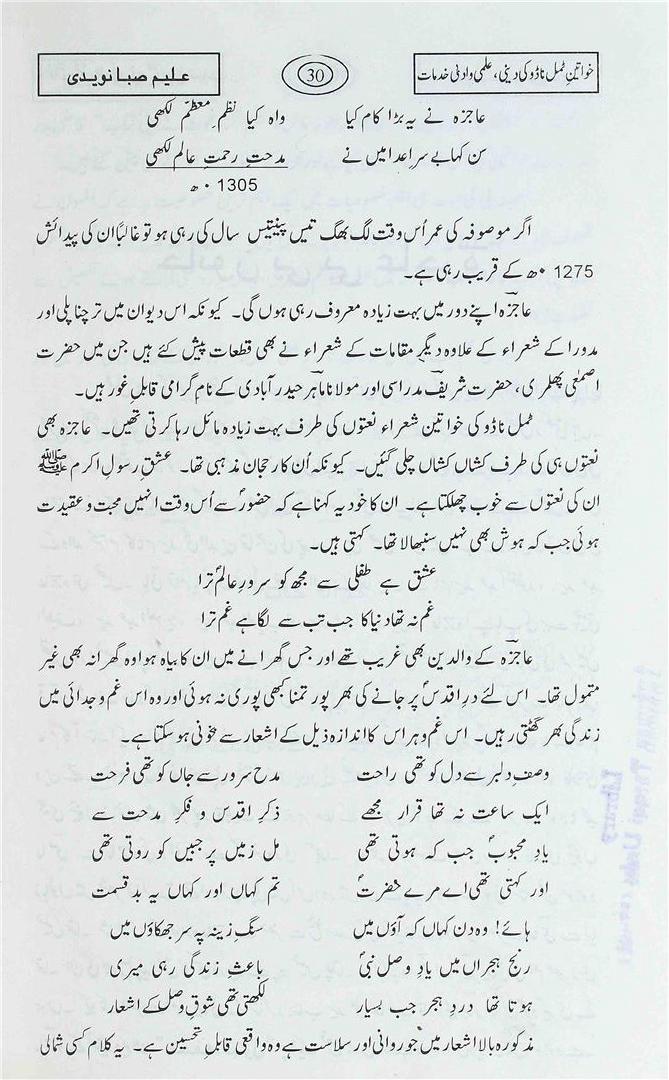 خواتینِ ٹمل ناڈو کی دینی، علمی و ادبی خدمات
30
علیم صبا نویدی
عاجزہ نے یہ بڑا کام کیا واہ کیا نظمِ معظّم لکھی
سن کہا بے سرِ اعدا میں نے مدحتِ رحمتِ عالم لکھی
1305ھ
اگر موصوفہ کی عمر اُس وقت لگ بھگ تیس پینتیس سال کی رہی ہو تو غالباً ان کی پیدائش
1275ھ کے قریب رہی ہے۔
عاجزہ اپنے دور میں بہت زیادہ معروف رہی ہوں گی۔ کیونکہ اس دیوان میں ترچناپلی اور
مدورا کے شعراء کے علاوہ دیگر مقامات کے شعراء نے بھی قطعات پیش کئے ہیں جن میں حضرت
اصمعی پھلمری، حضرت شریف مدراسی اور مولانا ماہر حیدرآبادی کے نامِ گرامی قابلِ غور ہیں۔
ٹمل ناڈو کی خواتین شعراء نعتوں کی طرف بہت زیادہ مائل رہا کرتی تھیں۔ عاجزہ بھی
نعتوں ہی کی طرف کشاں کشاں چلی گئیں۔ کیونکہ اُن کا رجحان مذہبی تھا۔ عشقِ رسولِ اکرم ﷺ
ان کی نعتوں سے خوب چھلکتا ہے۔ ان کا خود یہ کہنا ہے کہ حضورؐ سے اُس وقت انہیں محبت و عقیدت
ہوئی جب کہ ہوش بھی نہیں سنبھالا تھا۔ کہتی ہیں۔
عشق ہے طفلی سے مجھ کو سرورِ عالمؐ ترا
غم نہ تھا دنیا کا جب تب سے لگا ہے غم ترا
عاجزہ کے والدین بھی غریب تھے اور جس گھرانے میں ان کا بیاہ ہوا وہ گھرانہ بھی غیر
متمول تھا۔ اس لئے درِ اقدسؐ پر جانے کی بھرپور تمنا کبھی پوری نہ ہوئی اور وہ اس غم وجدائی میں
زندگی بھر گھٹتی رہیں۔ اس غم و ہراس کا اندازہ ذیل کے اشعار سے خوبی ہو سکتا ہے۔
وصفِ دلبر سے دل کو تھی راحت مدح سرور سے جاں کو تھی فرحت
ایک ساعت نہ تھا قرار مجھے ذکرِ اقدس و فکرِ مدحت سے
یادِ محبوبؐ جب کہ ہوتی تھی مل زمیں پر جبیں کو روتی تھی
اور کہتی تھی اے مرے حضرتؐ تم کہاں اور کہاں یہ بدقسمت
ہائے! وہ دن کہاں کہ آؤں میں سنگِ زینہ پہ سر جھکاؤں میں
رنجِ ہجراں میں یادِ وصلِ نبیؐ باعثِ زندگی رہی میری
ہوتا تھا دردِ ہجر جب بسیار لکھتی تھی شوقِ وصل کے اشعار
مذکورہ بالا اشعار میں جو روانی اور سلاست ہے وہ واقعی قابلِ تحسین ہے۔ یہ کلام کسی شمالی